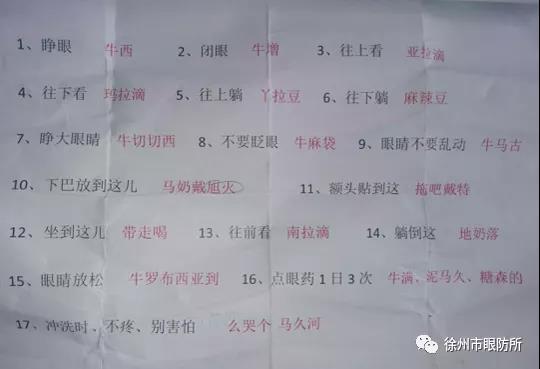 1、睁眼 牛西 2、闭眼 牛增 3、往上看 亚拉滴
4、往下看 玛拉滴 5、往上躺 丫拉豆 6、往下躺 麻辣豆
7、睁大眼睛 牛切切西 8、不要眨眼 牛麻袋 9、眼睛不要乱动 牛马古
10、下巴放到这儿 马奶戴尬灭 11、额头贴到这 拖吧戴特
12、坐到这儿 带走喝 13、往前看 南拉滴 14、躺倒这 地奶落
15、眼睛放松 牛罗布西亚到 16、点眼药1日3次 牛满、泥马久、糖森的
17、冲洗时、不疼、别害怕 么哭个 马久河
徐州市眼防所